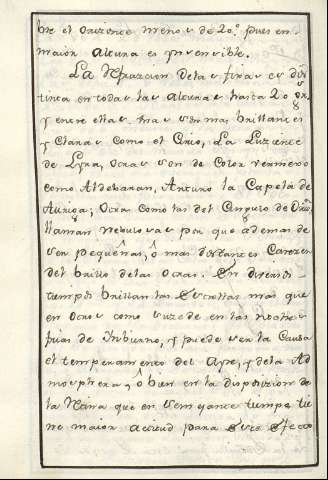 bre el Orizonte menos de 20.° pues en
maior alcuna es ynvencible.
La Reparacion de las fixas es dis
tinta en todas las alcunas hasta 20 gr.
y entre ellas, mas son mas brillantes
y Claras como el Orio, La Luziente
de Lyra, Otras son de Color vermexo
como Aldebaran, Arturo la Capela de
Auriga; Otras como las del Cinguro de Orion
llaman nebulosas por que ademas de
ser pequeñas, ô mas distantes Carezen
del brillo de las Otras. En diversos
tiempos brillan las Estrellas mas que
en Otros como suzede en las noches
frias de Inbierno, y puede ser la Causa
el temperamento del Ayre, y de la Ad
mosphera, ô bien en la disposizion de
la Retina que en semejante tiempo tie
ne maior actitud para este efecto